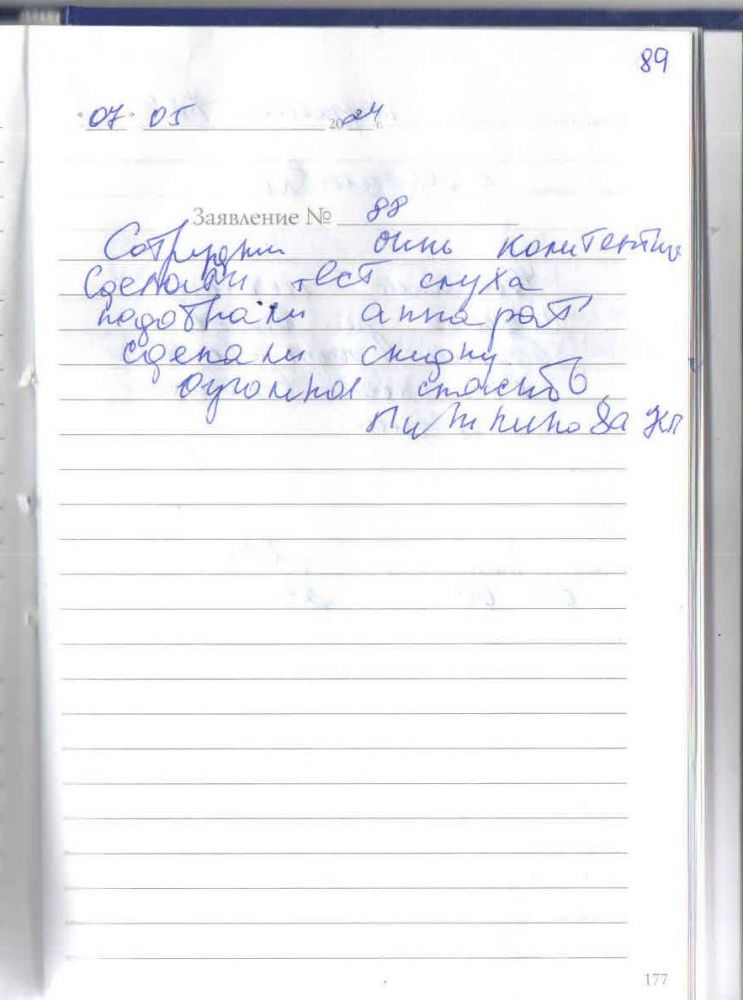 89
"07" 05 2024 г.
Заявление № 88
Сотрудники очень компетентны
Сделали тест слуха
подобрали аппарат
сделали скидку
огромное спасибо
177